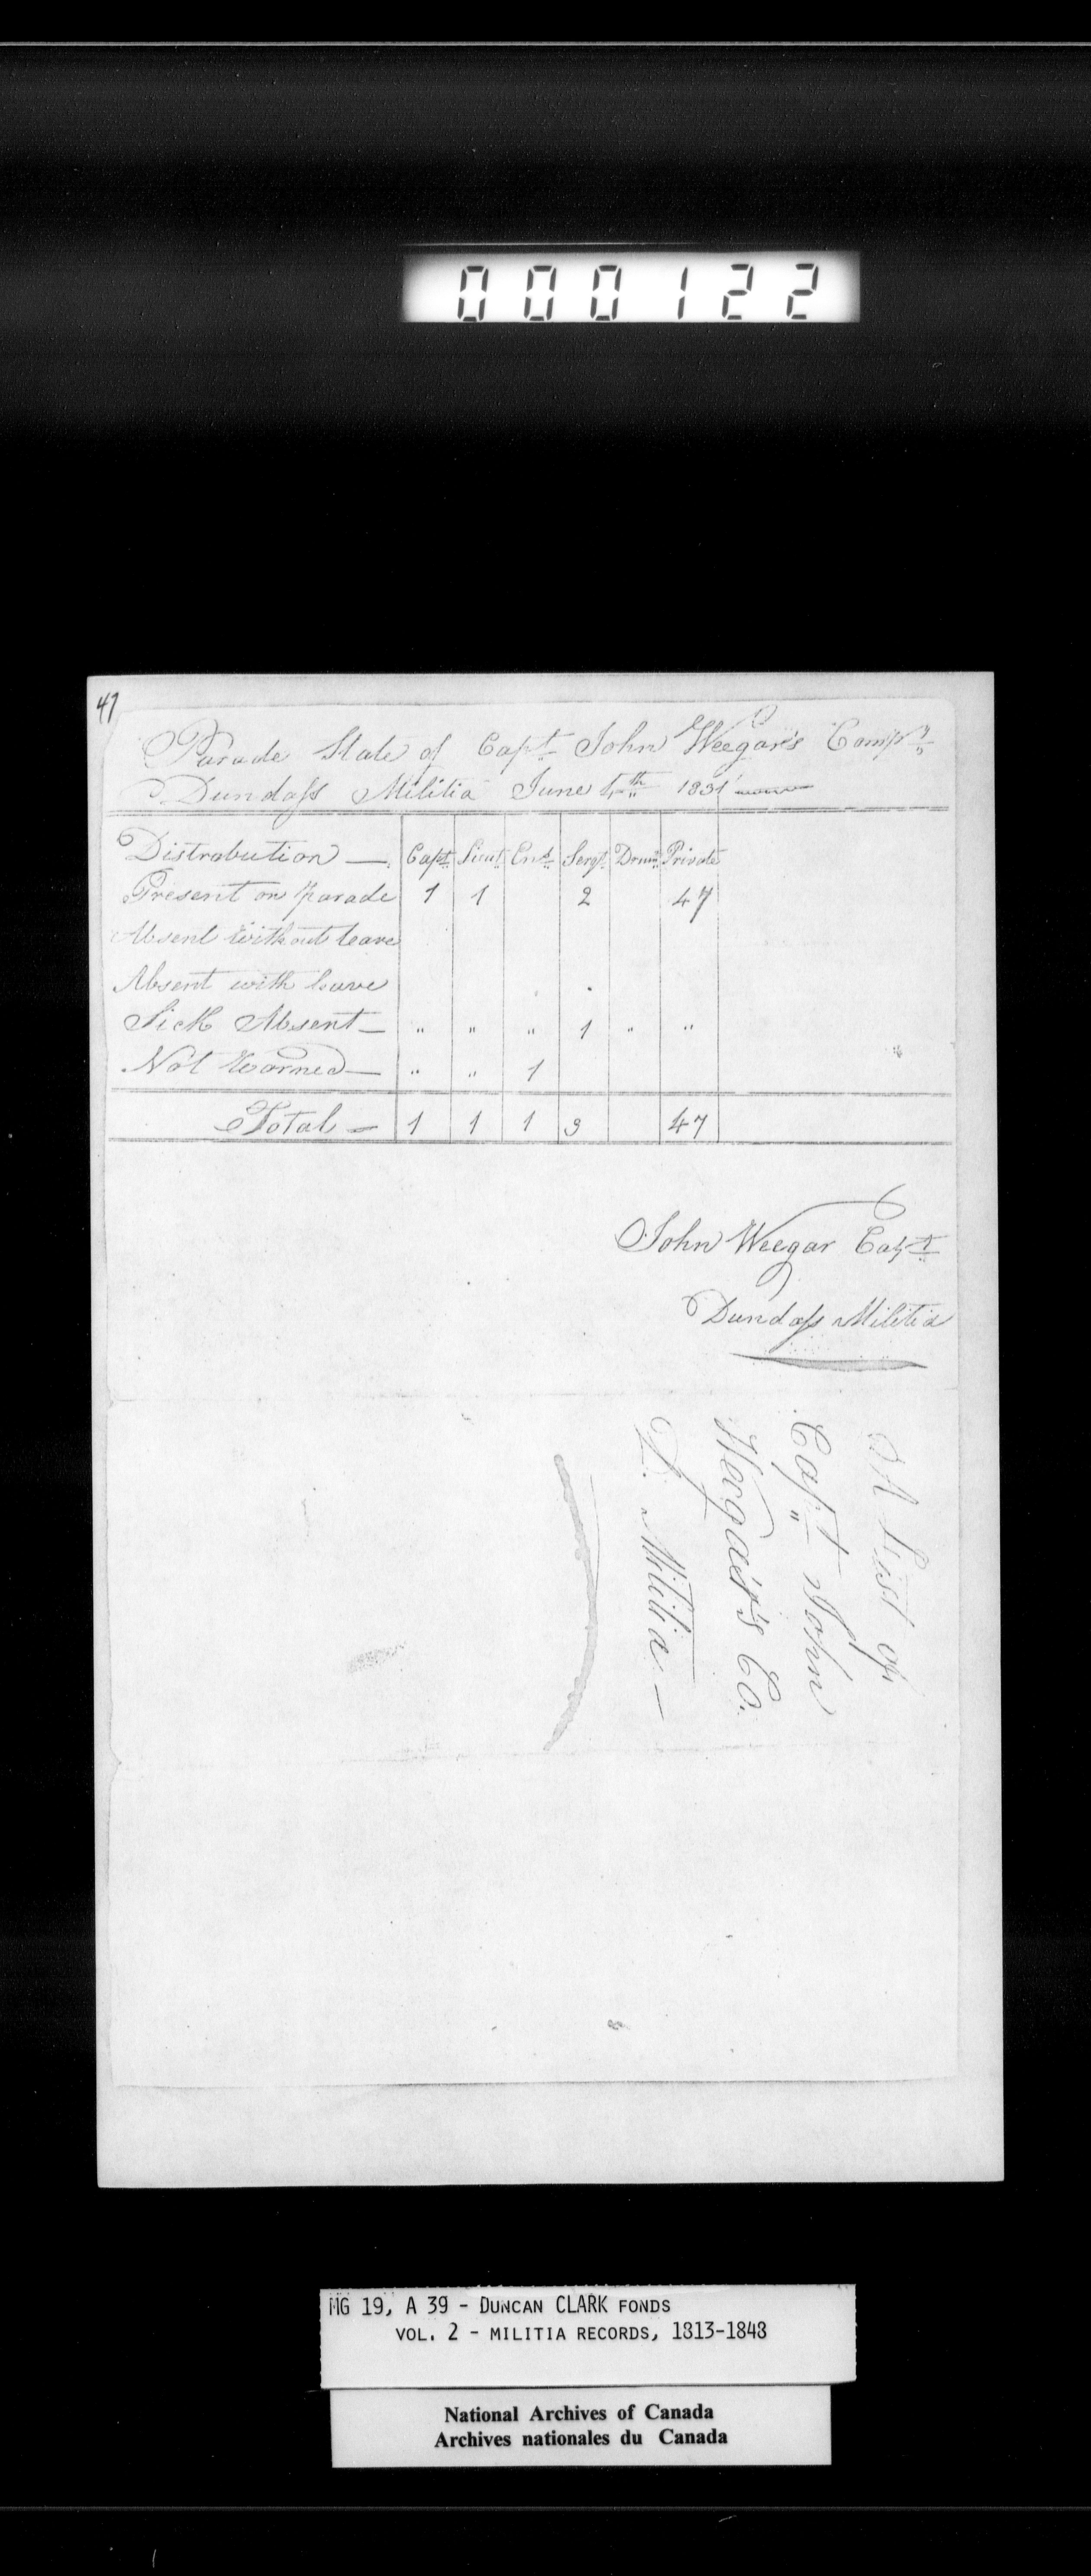 000122
47
Parade State of Capt John Weegar's Compy
Dundass Militia June 4th 1831
Distrabution — Capt Lieut Ens Sergt Drum Private
Present on parade 1 1 2 47
Absent without leave
Absent with leave
Sick Absent — " " " 1 " "
Not Warned — " " 1
Total — 1 1 1 3 47
John Weegar Capt
Dundass Militia
A List of
Capt John
Weegar's Co.
D. Militia —
MG 19, A 39 - DUNCAN CLARK FONDS
VOL. 2 - MILITIA RECORDS, 1813-1848
National Archives of Canada
Archives nationales du Canada